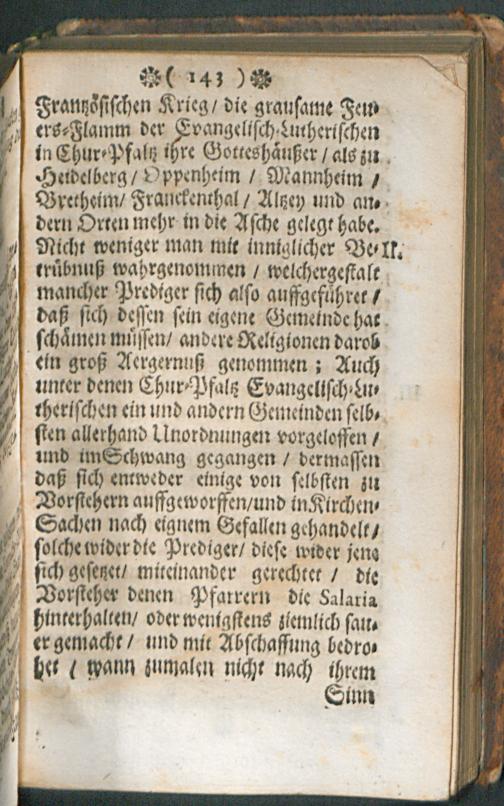 ❋( 143 )❋
Frantzösischen Krieg/ die grausame Feu-
ers-Flamm der Evangelisch-Lutherischen
in Chur-Pfaltz ihre Gotteshäußer / als zu
Heidelberg / Oppenheim / Mannheim /
Bretheim/ Franckenthal / Altzey und an-
dern Orten mehr in die Asche gelegt habe.
Nicht weniger man mit inniglicher Be- II.
trübnuß wahrgenommen / welchergestalt
mancher Prediger sich also auffgeführet /
daß sich dessen sein eigene Gemeinde hat
schämen müssen/ andere Religionen darob
ein groß Aergernuß genommen ; Auch
unter denen Chur-Pfaltz Evangelisch-Lu-
therischen ein und andern Gemeinden selb-
sten allerhand Unordnungen vorgeloffen /
und im Schwang gegangen / dermassen
daß sich entweder einige von selbsten zu
Vorstehern auffgeworffen/und in Kirchen-
Sachen nach eignem Gefallen gehandelt/
solche wider die Prediger/ diese wider jene
sich gesetzet/ miteinander gerechtet / die
Vorsteher denen Pfarrern die Salaria
hinterhalten/ oder wenigstens ziemlich sau-
er gemacht / und mit Abschaffung bedro-
het / wann zumalen nicht nach ihrem
Sinn